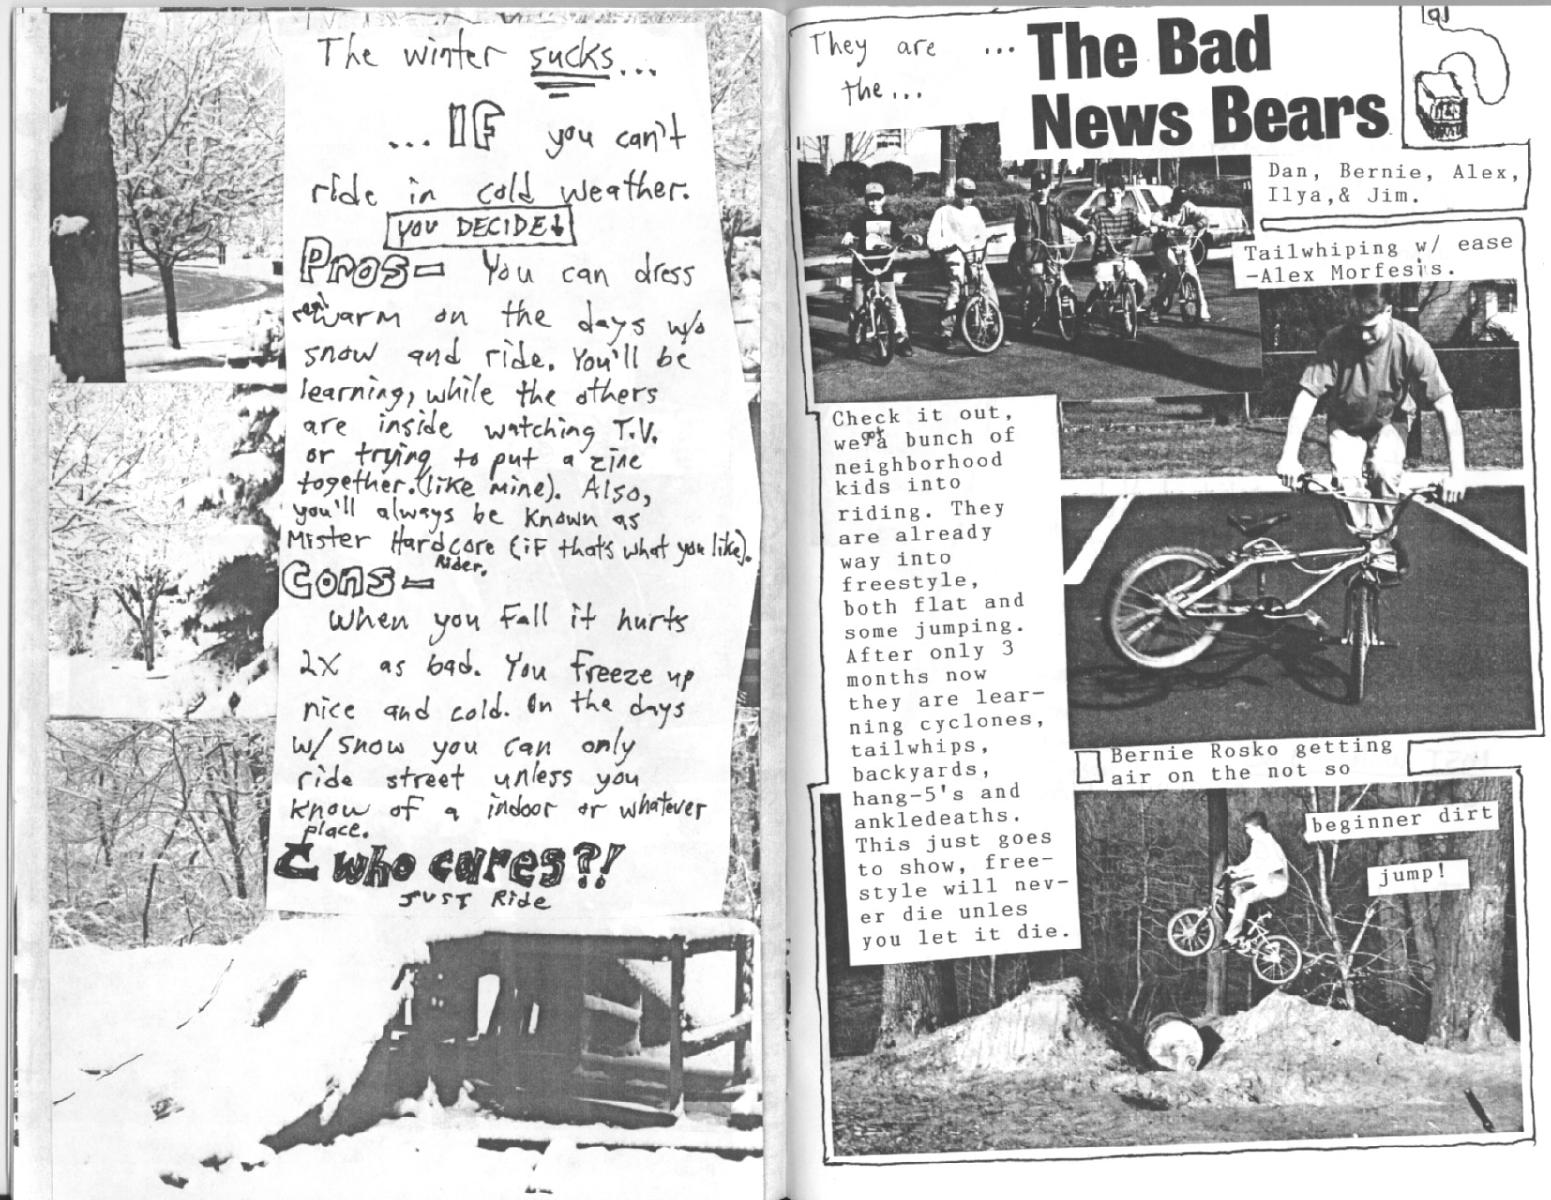 The winter sucks...
...IF you can't
ride in cold weather.
YOU DECIDE!
Pros- You can dress
warm on the days w/o
snow and ride. You'll be
learning, while the others
are inside watching T.V.
or trying to put a zine
together. (like mine). Also,
you'll always be known as
Mister Hardcore (iF that's what you like).
Rider.
Cons-
When you Fall it hurts
2X as bad. You Freeze up
nice and cold. On the days
w/ snow you can only
ride street unless you
know of a indoor or whatever
place.
who cares?!
JUST Ride
They are ...
the...
The Bad
News Bears
Dan, Bernie, Alex,
Ilya,& Jim.
Tailwhiping w/ ease
-Alex Morfesis.
Check it out,
we got a bunch of
neighborhood
kids into
riding. They
are already
way into
freestyle,
both flat and
some jumping.
After only 3
months now
they are lear-
ning cyclones,
tailwhips,
backyards,
hang-5's and
ankledeaths.
This just goes
to show, free-
style will nev-
er die unles
you let it die.
Bernie Rosko getting
air on the not so
beginner dirt
jump!